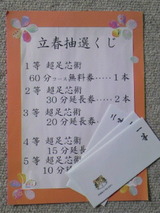 立春抽選くじ
1等 超足芯術
60分コース無料券…1本
2等 超足芯術
30分延長券…2本
3等 超足芯術
20分延長券
4等 超足芯術
15分延長券
5等 超足芯術
10分